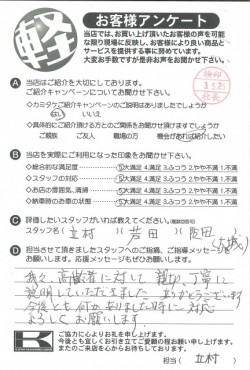 軽
お客様アンケート
当店では、お買い上げ頂いたお客様の声を可能
な限り現場に反映し、お客様により良い商品と
サービスを提供する事に努めています。
大変お手数ですが是非お声をお聞かせ下さい。
検印
社長
A 当店はご紹介を大切にしております。
ご紹介キャンペーンについてお聞かせ下さい。
◇カミタケご紹介キャンペーンのご説明はありましたでしょうか
はい いいえ
◇具体的にご紹介頂ける方とのご関係をお聞かせ頂けますでしょうか
ご親族 ご友人 職場の方 機会があれば紹介したい
B 当店を実際にご利用になった印象をお聞かせ下さい。
◇総合的な満足度 5大満足 4.満足 3.ふつう 2.やや不満 1.不満
◇スタッフの対応 5大満足 4.満足 3.ふつう 2.やや不満 1.不満
◇お店の雰囲気、清掃 5大満足 4.満足 3.ふつう 2.やや不満 1.不満
◇納車時のお車の状態 5大満足 4.満足 3.ふつう 2.やや不満 1.不満
C 評価したいスタッフがいれば教えてください。
スタッフ名( 立村 )( 岩田 )( 阪田 )
D 担当させて頂きましたスタッフへのご指摘、ご指導メッセージを
お願いします。応援メッセージもぜひお願いします。
我々、高齢者に対して親切、丁寧に
説明していただきました ありがとうございます
今後とも何か有りました時に対応
よろしくお願いします
ご協力に心よりお礼を申し上げます。
今後とも宜しくお引き立てご愛顧の程お願い申し上げます。
またのご来店を心からお待ちしております。
担当( 立村 )